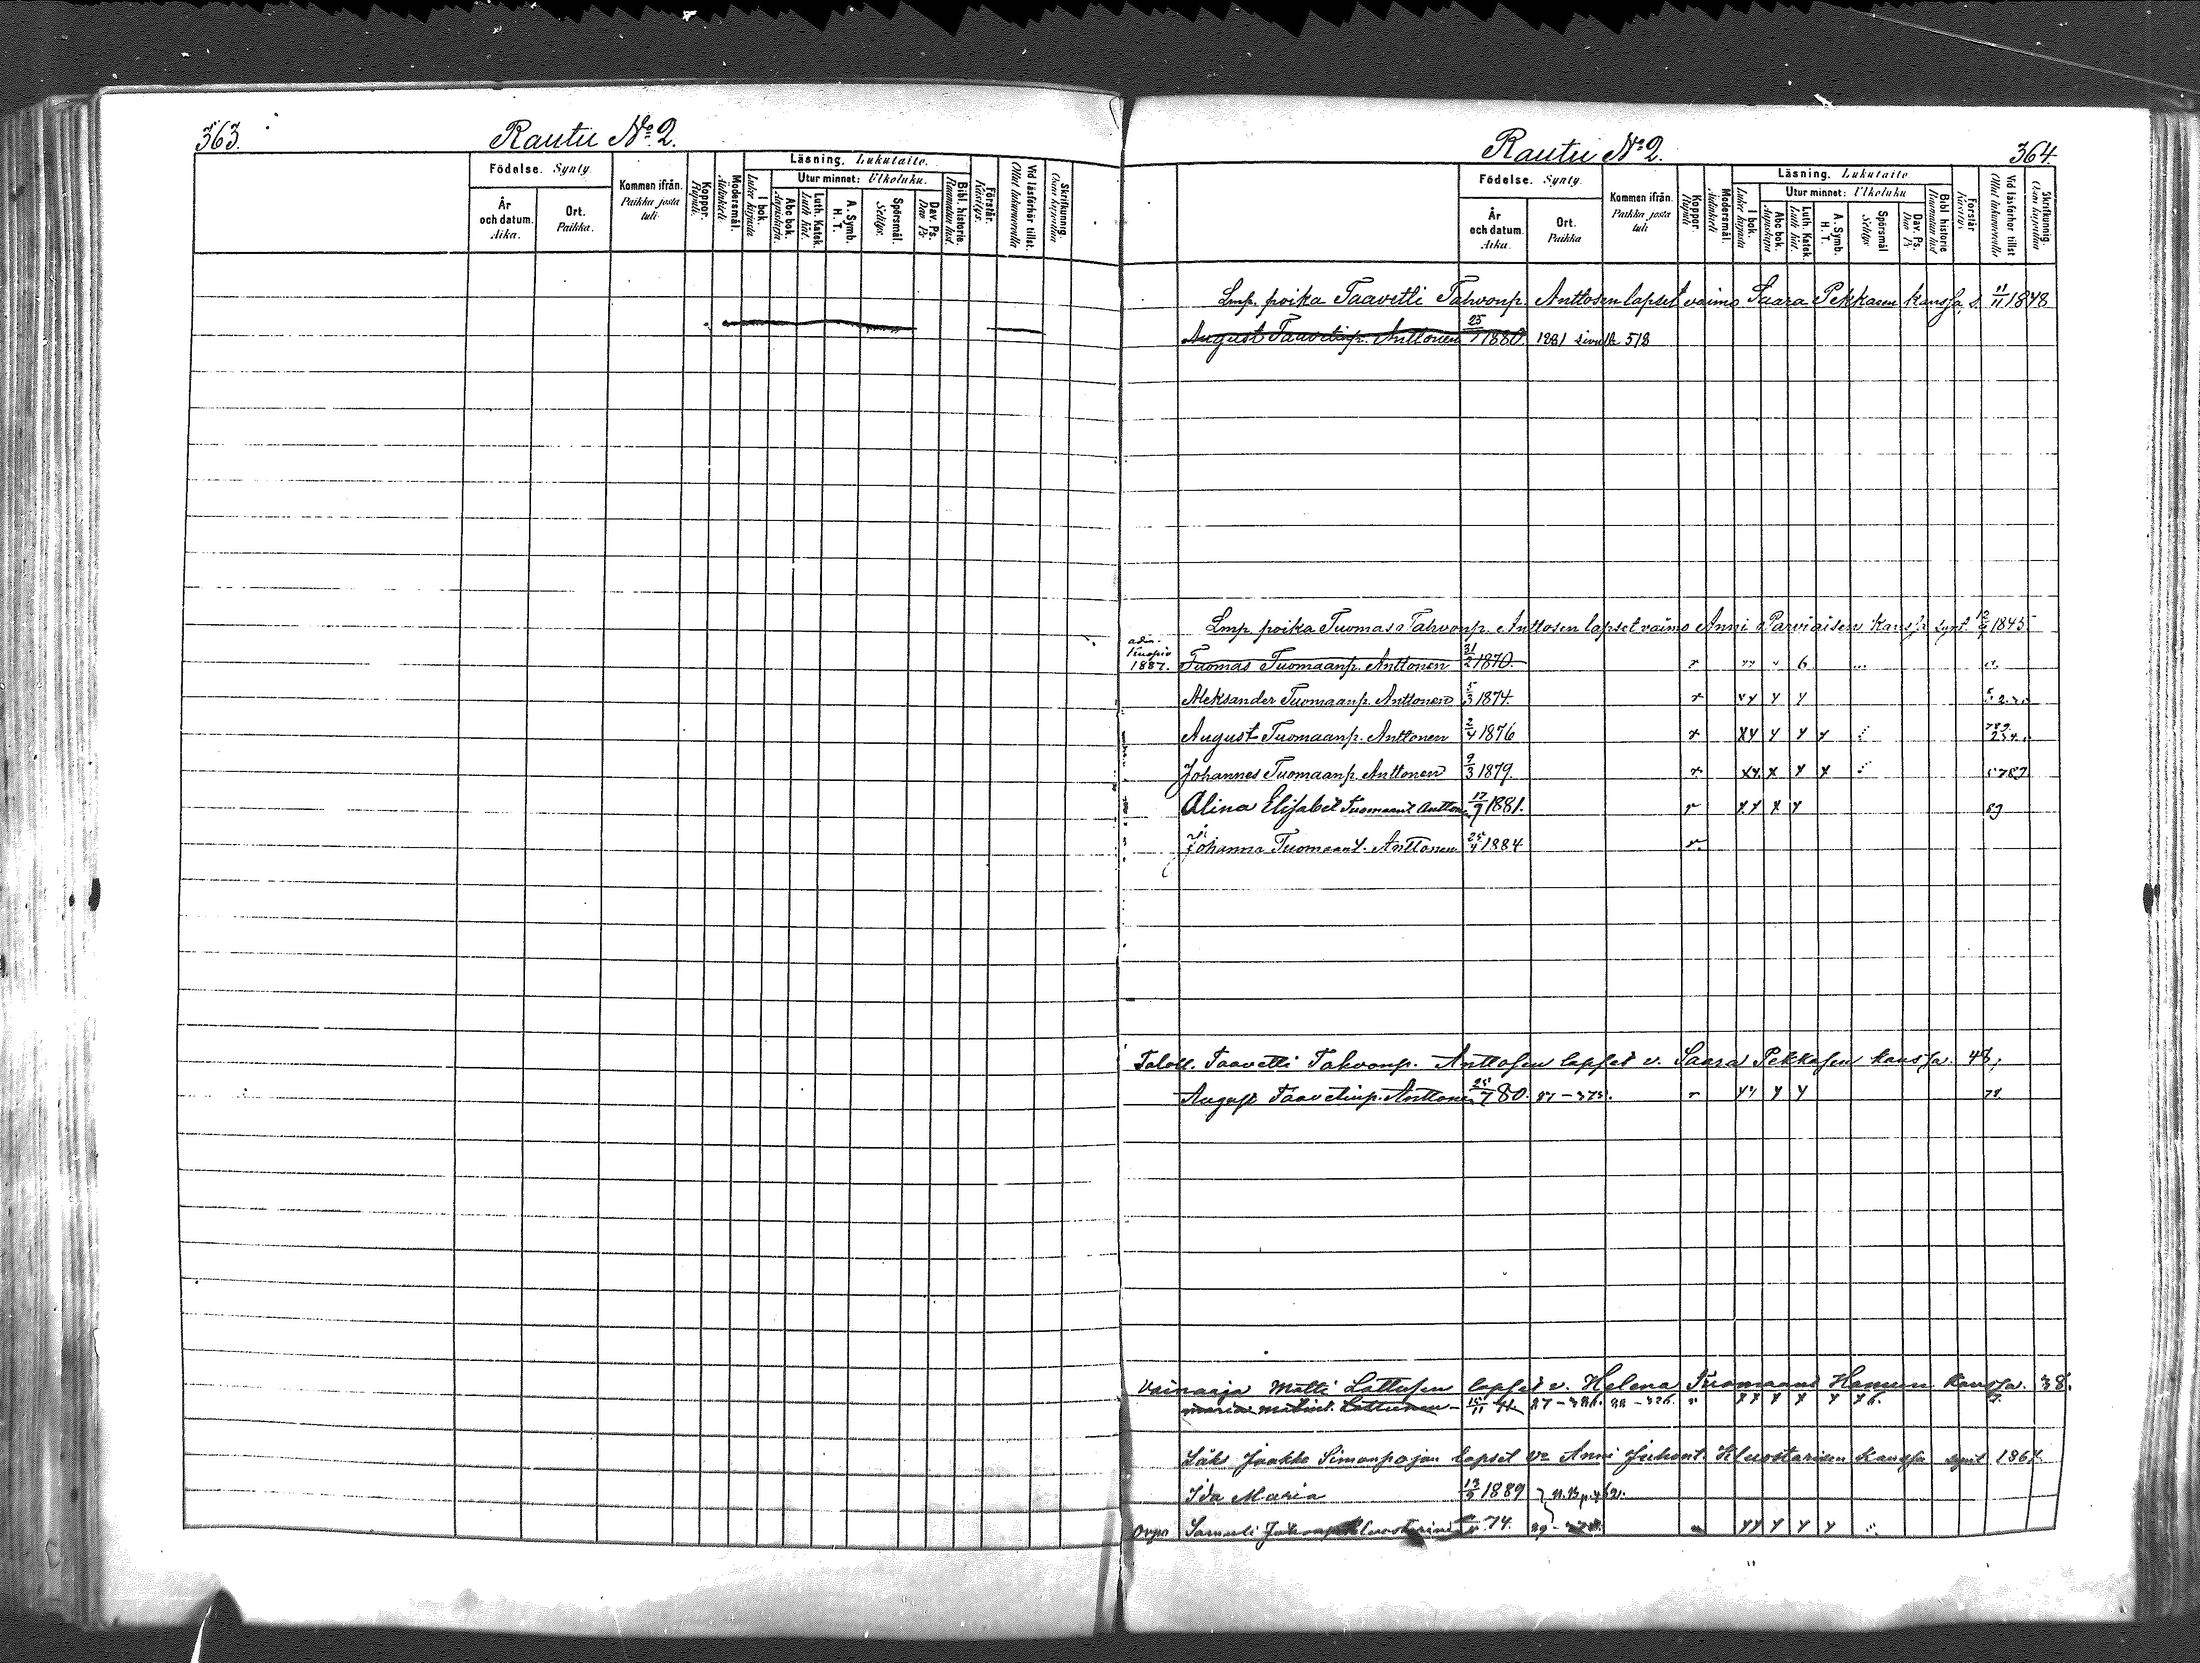 363.
Rautu No 2.
Födelse. Synty.
År och datum. Aika.
Ort. Paikka.
Kommen ifrån. Paikka josta tuli.
Koppor. Rupuli.
Modersmål. Äidinkieli.
Läsning. Lukutaito.
I bok. Lukee kirjasta
Utur minnet: Ulkoluku.
Abc bok. Aapiskirja
Luth. Katek. Luth Kat.
A. Symb. H. T.
Spörsmål. Selitys.
Dav. Ps. Dav. Ps.
Bibl. historie
Förstår. Käsitys.
Vid läsförhör tillst. Ollut lukuvuorolla
Skrifkunnig. Osaa kirjoittaa
Rautu No 2.
364
Födelse. Synty.
År och datum. Aika.
Ort. Paikka
Kommen ifrån. Paikka josta tuli
Koppor. Rupuli
Modersmål. Äidinkieli
Läsning. Lukutaito
I bok. Lukee kirjasta
Utur minnet: Ulkoluku
Abc bok. Aapiskirja
Luth. Katek. Luth Kat.
A. Symb. H. T.
Spörsmål Selitys
Dav. Ps. Dav Ps
Bibl. historie
Förstår Käsitys
Vid läsförhör tillst Ollut lukuvuorolla
Skrifkunnig. Osaa kirjoittaa
Lmp. poika Taavetti Tahvonp. Anttosen lapset vaimo Saara Pekkasen kanssa s. 11/11 1848
August Taavetinp. Anttonen 25/7 1880. 1881 sivulle 518
Lmp poika Tuomas Tahvonp. Anttosen lapset vaimo Anni Parviaisen kanssa synt. 1845
1887. Tuomas Tuomaanp. Anttonen 31/2 1870.
Aleksander Tuomaanp. Anttonen 5/3 1874.
August Tuomaanp. Anttonen 2/4 1876
Johannes Tuomaanp. Anttonen 9/3 1879.
Alina Elisabet Tuomaant Antton 17/9 1881.
Johanna Tuomaant. Anttonen 25/4 1884
Taloll. Taavetti Tahvonp. Anttosen lapset v. Saara Pekkasen kanssa. 48,
August Taavetinp. Anttonen 25/7 80.
Vainaaja Matti Lattusen lapset v. Helena Tuomaant Hamun kanssa. 38.
Maria Matint. Lattunen
Jaakko Simonpojan lapset Anni Juhont. Kluostarisen kanssa synt 1867.
Ida Maria 13/9 1889
Samuli 74.